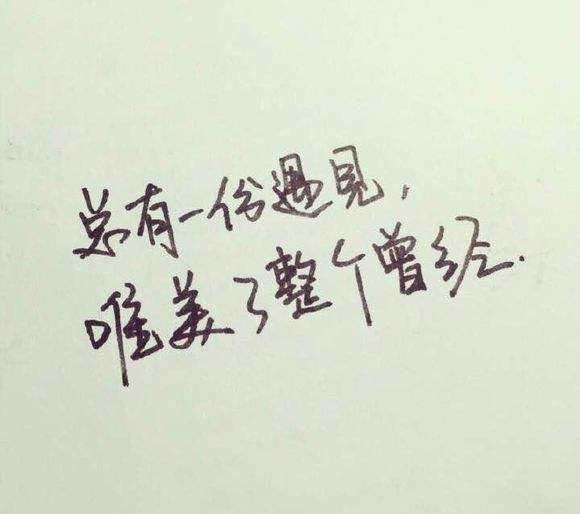 总有一份遇見,
唯美了整个曾经.